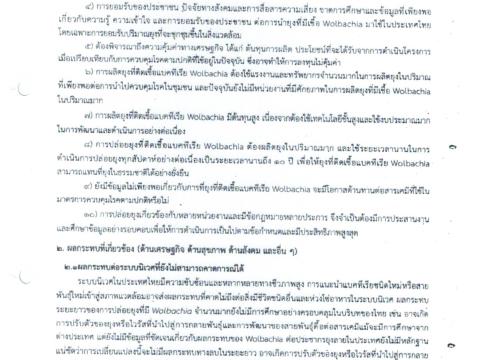 ๔) การยอมรับของประชาชน ปัจจัยทางสังคมและการสื่อสารความเสี่ยง ขาดการศึกษาและข้อมูลที่เพียงพอ
เกี่ยวกับความรู้ ความเข้าใจ และการยอมรับของประชาชน ต่อการนำยุงที่มีเชื้อ Wolbachia มาใช้ในประเทศไทย
โดยเฉพาะการยอมรับปริมาณยุงที่จะชุกชุมขึ้นในสิ่งแวดล้อม
๕) ต้องพิจารณาถึงความคุ้มค่าทางเศรษฐกิจ ได้แก่ ต้นทุนการผลิต ประโยชน์ที่จะได้รับจากการดำเนินโครงการ
เมื่อเปรียบเทียบกับการควบคุมโรคตามปกติที่ใช้อยู่ในปัจจุบัน ซึ่งอาจทำให้การลงทุนไม่คุ้มค่า
๖) การผลิตยุงที่ติดเชื้อแบคทีเรีย Wolbachia ต้องใช้แรงงานและทรัพยากรจำนวนมากในการผลิตยุงในปริมาณ
ที่เพียงพอต่อการนำไปควบคุมโรคในชุมชน และปัจจุบันยังไม่มีหน่วยงานที่มีศักยภาพในการผลิตยุงที่มีเชื้อ Wolbachia
ในปริมาณมาก
๗) การผลิตยุงที่ติดเชื้อแบคทีเรีย Wolbachia มีต้นทุนสูง เนื่องจากต้องใช้เทคโนโลยีขั้นสูงและใช้งบประมาณมาก
ในการพัฒนาและดำเนินการอย่างต่อเนื่อง
๘) การปล่อยยุงที่ติดเชื้อแบคทีเรีย Wolbachia ต้องผลิตยุงในปริมาณมาก และใช้ระยะเวลานานในการ
ดำเนินการปล่อยยุงทุกสัปดาห์อย่างต่อเนื่องเป็นระยะเวลานานถึง ๑๐ ปี เพื่อให้ยุงที่ติดเชื้อแบคทีเรีย Wolbachia
สามารถแทนที่ยุงในธรรมชาติได้อย่างยั่งยืน
๙) ยังมีข้อมูลไม่เพียงพอเกี่ยวกับการที่ยุงที่ติดเชื้อแบคทีเรีย Wolbachia จะมีโอกาสต้านทานต่อสารเคมีที่ใช้ใน
มาตรการควบคุมโรคตามปกติหรือไม่
๑๐) การปล่อยยุงเกี่ยวข้องกับหลายหน่วยงานและมีข้อกฎหมายหลายประการ จึงจำเป็นต้องมีการประสานงาน
และศึกษาข้อมูลอย่างรอบคอบเพื่อให้การดำเนินการเป็นไปตามข้อกำหนดและมีประสิทธิภาพสูงสุด
๒. ผลกระทบที่เกี่ยวข้อง (ด้านเศรษฐกิจ ด้านสุขภาพ ด้านสังคม และอื่น ๆ)
๒.๑ผลกระทบต่อระบบนิเวศที่ยังไม่สามารถคาดการณ์ได้
ระบบนิเวศในประเทศไทยมีความซับซ้อนและหลากหลายทางชีวภาพสูง การแนะนำแบคทีเรียชนิดใหม่หรือสาย
พันธุ์ใหม่เข้าสู่สภาพแวดล้อมอาจส่งผลกระทบที่คาดไม่ถึงต่อสิ่งมีชีวิตชนิดอื่นและห่วงโซ่อาหารในระบบนิเวศ ผลกระทบ
ระยะยาวของการปล่อยยุงที่มี Wolbachia จำนวนมากยังไม่มีการศึกษาอย่างครอบคลุมในบริบทของไทย เช่น อาจเกิด
การปรับตัวของยุงหรือไวรัสที่นำไปสู่การกลายพันธุ์และการพัฒนาของสายพันธุ์ดื้อต่อสารเคมีแม้จะมีการศึกษาจาก
ต่างประเทศ แต่ยังไม่มีข้อมูลที่ชัดเจนเกี่ยวกับผลกระทบของ Wolbachia ต่อประชากรยุงลายในประเทศไทยยังไม่มีหลักฐาน
แน่ชัดว่าการเปลี่ยนแปลงนี้จะไม่มีผลกระทบทางลบในระยะยาว อาจเกิดการปรับตัวของยุงหรือไวรัสที่นำไปสู่การกลายพันธุ์